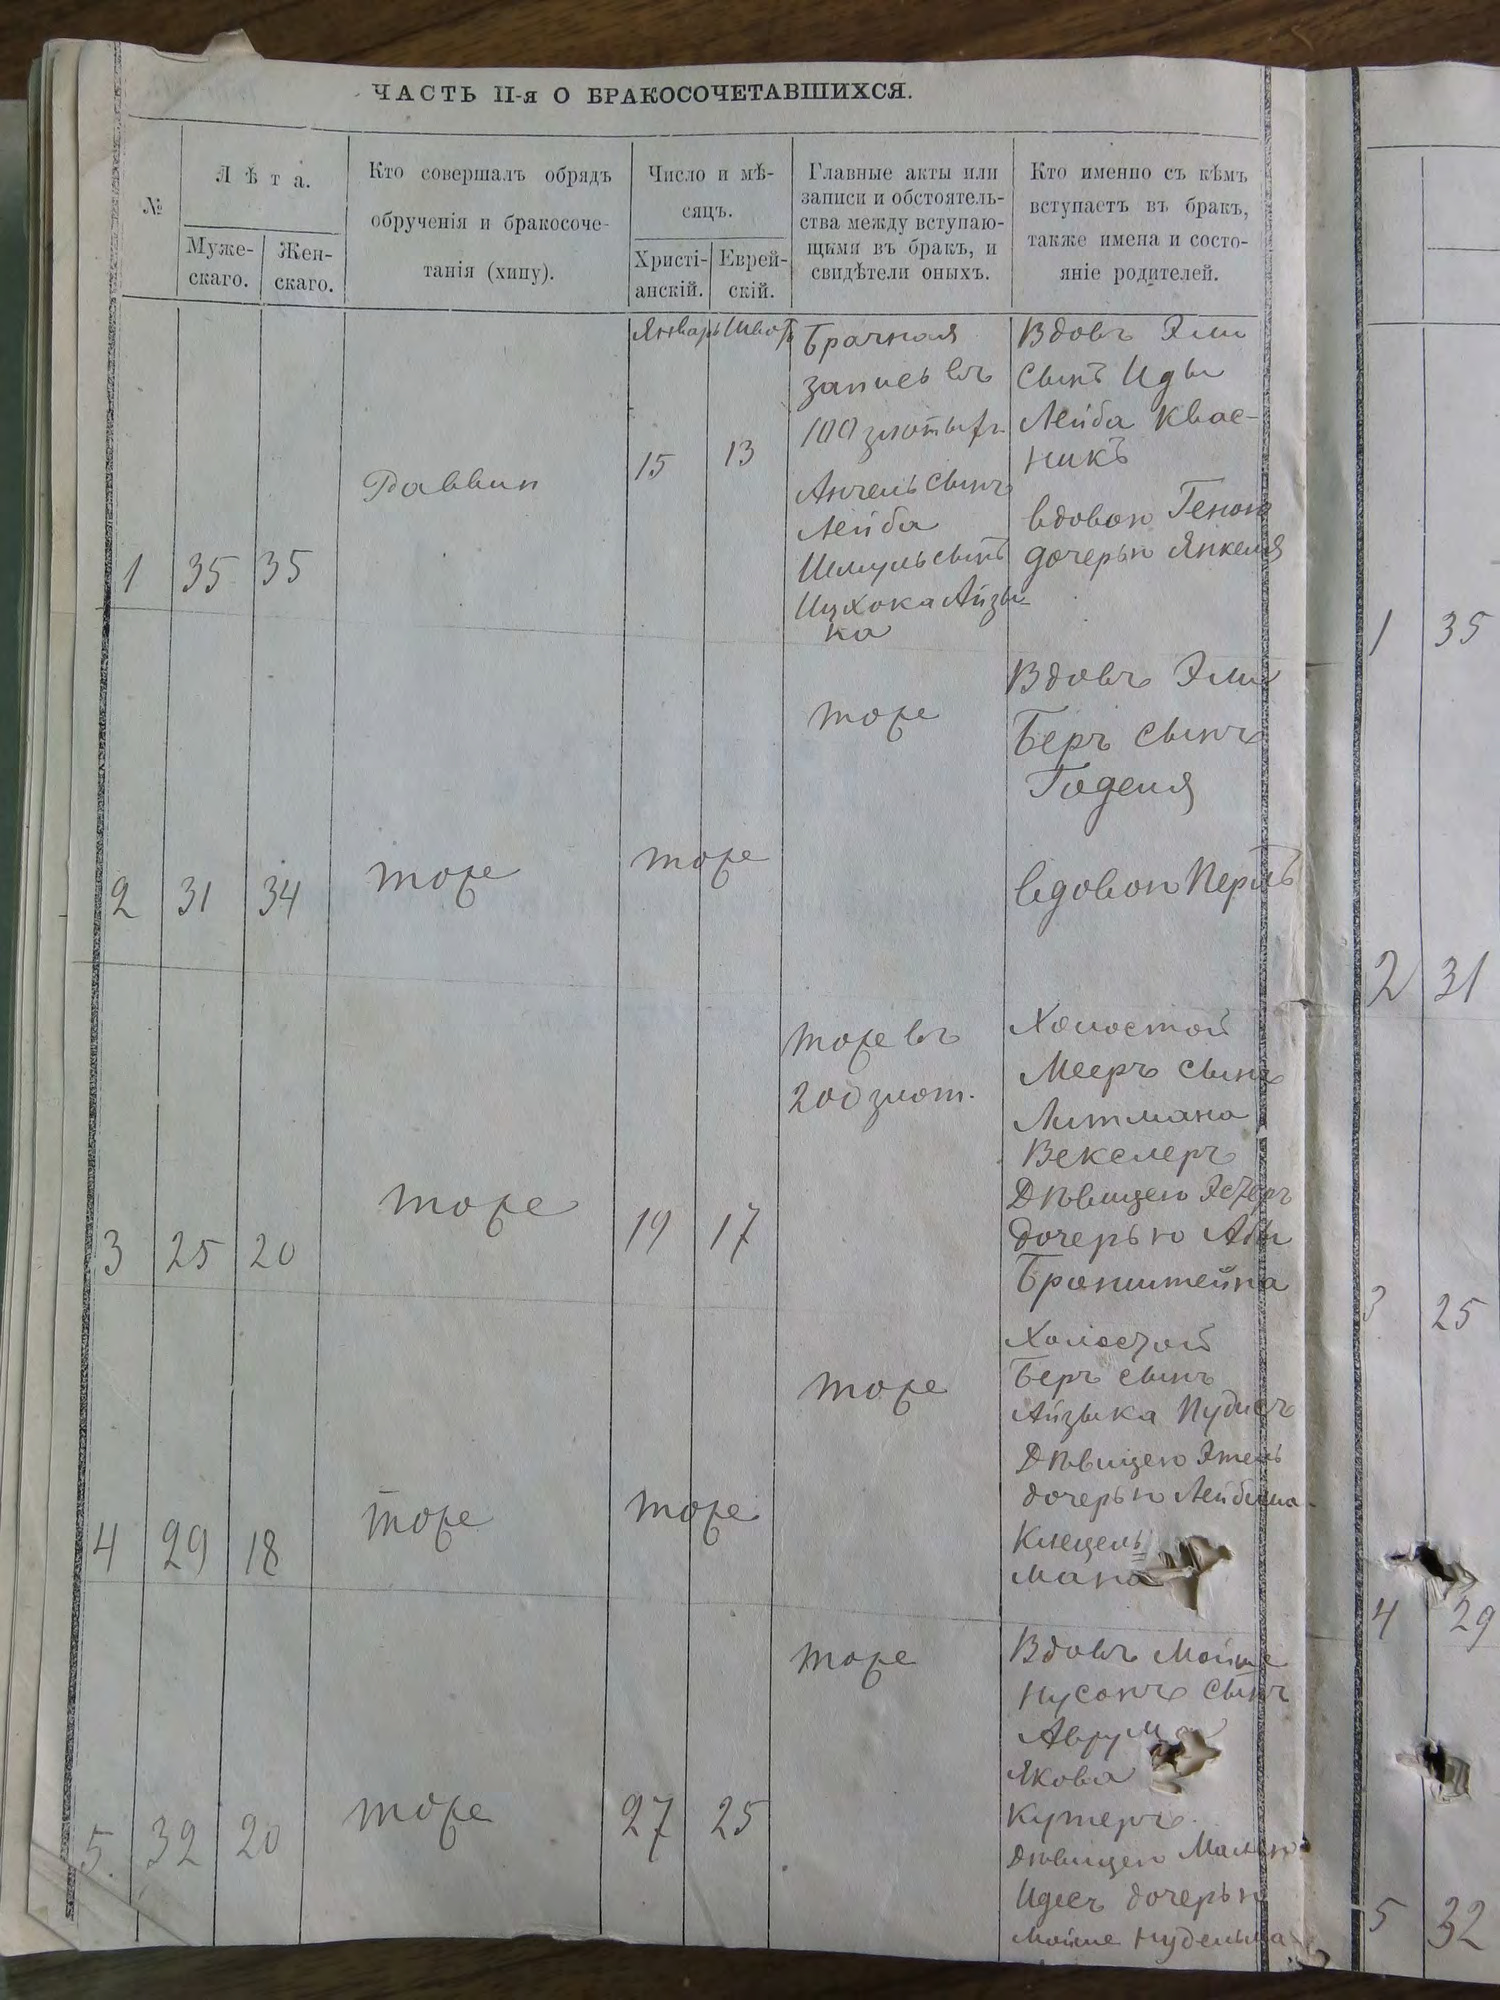 ЧАСТЬ II-я О БРАКОСОЧЕТАВШИХСЯ.
№
Лѣта.
Муже-
скаго.
Жен-
скаго.
Кто совершалъ обрядъ
обрученія и бракосоче-
танія (хипу).
Число и мѣ-
сяцъ.
Христі-
анскій.
Еврей-
скій.
Главные акты или
записи и обстоятель-
ства между вступаю-
щими въ бракъ, и
свидѣтели оныхъ.
Кто именно съ кѣмъ
вступаетъ въ бракъ,
также имена и состо-
яніе родителей.
1
35
35
Раввин
Январь
15
13
Брачная
запись въ
100 злотыхъ
Анчель сынъ
Лейба
Шмуль сынъ
Ицхока Айзы-
ка
Вдовъ Эли
сынъ Иды
Лейба Квас-
никъ
вдовою Геною
дочерью Янкеля
2
31
34
тоже
тоже
тоже
Вдовъ Эли
Беръ сынъ
Годеля
вдовою Перлъ
3
25
20
тоже
19
17
тоже въ
200 злот.
Холостой
Мееръ сынъ
Литмана
Векслеръ
Дѣвицею Эстеръ
дочерью Абы
Бронштейна
4
29
18
тоже
тоже
тоже
Холостой
Беръ сынъ
Айзыка Пудисъ
Дѣвицею Этель
дочерью Лейбиша
Клецель
мана
5.
32
20
тоже
27
25
тоже
Вдовъ Мойше
Нусонъ сынъ
Аврума
Якова
Кутеръ
дѣвицею Малкою
Идесъ дочерью
Мойше Нудельма
1
35
2
31
3
25
4
29
5
32